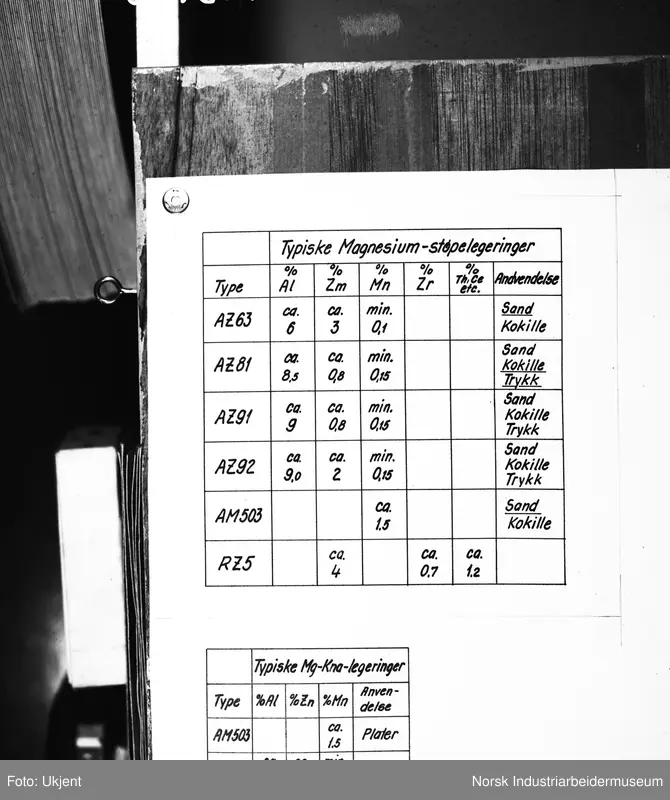 Typiske Magnesium-støpelegeringer
Type % Al % Zm % Mn % Zr % Th, Ce etc. Andvendelse
AZ63 ca. 6 ca. 3 min. 0,1 Sand Kokille
AZ81 ca. 8,5 ca. 0,8 min. 0,15 Sand Kokille Trykk
AZ91 ca. 9 ca. 0,8 min. 0,15 Sand Kokille Trykk
AZ92 ca. 9,0 ca. 2 min. 0,15 Sand Kokille Trykk
AM503 ca. 1.5 Sand Kokille
RZ5 ca. 4 ca. 0,7 ca. 1.2
Typiske Mg-Kna-legeringer
Type %Al %Zn %Mn Anven-delse
AM503 ca. 1.5 Plater
Foto: Ukjent
Norsk Industriarbeidermuseum